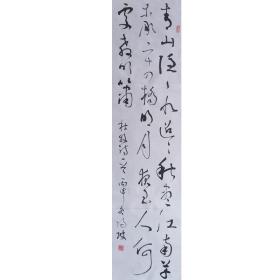 青山隐〻水迢〻秋尽江南草
未凋二十四橋明月夜玉人何
處教吹簫
杜牧诗一首丙申